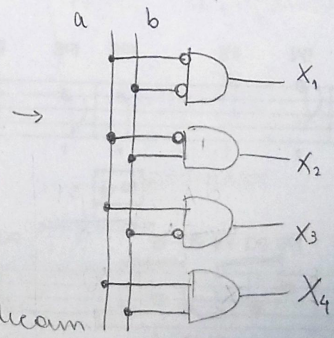 a b
X1
X2
X3
X4